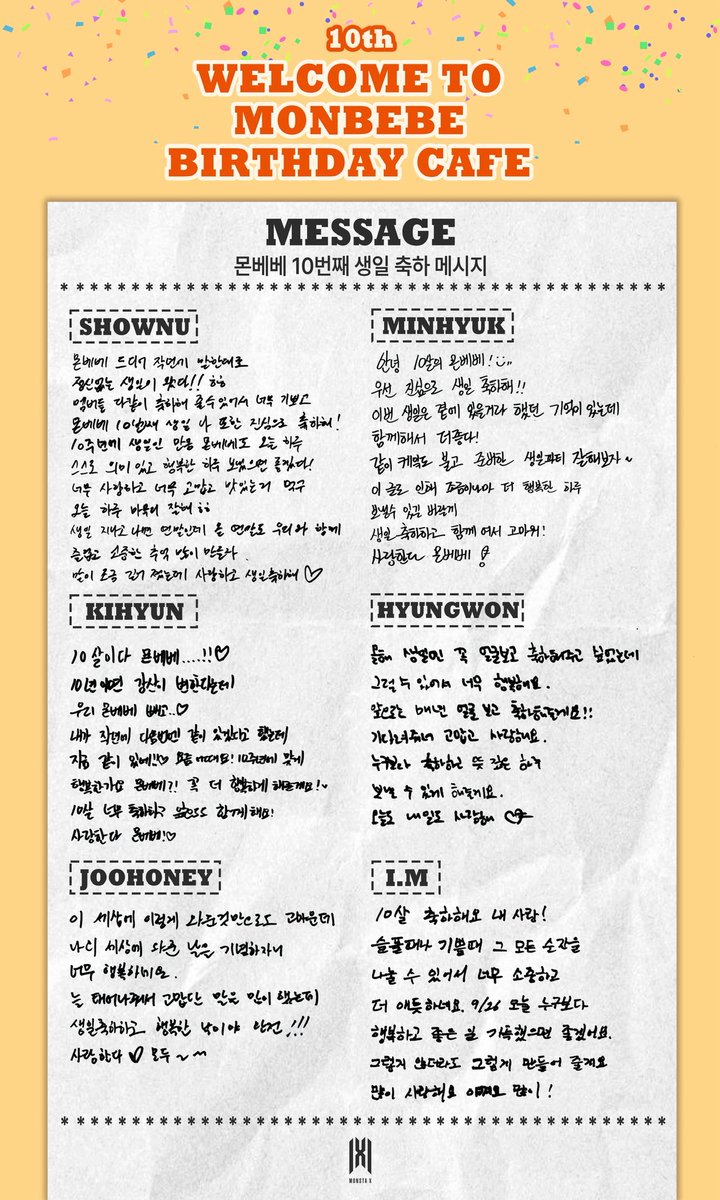 10th
WELCOME TO
MONBEBE
BIRTHDAY CAFE
MESSAGE
몬베베 10번째 생일 축하 메시지
SHOWNU
몬베베 드디어 작년에 말한대로
정신없는 생일이 왔다!! ㅎㅎ
멤버들 다같이 축하해 줄수있어서 너무 기쁘고
몬베베 10번째 생일 나 또한 진심으로 축하해!
10주년에 생일인 만큼 몬베베도 오늘 하루
스스로 의미 있고 행복한 하루 보냈으면 좋겠다!
너무 사랑하고 너무 고맙고 맛있는거 먹구
오늘 하루 마무리 잘해 ㅎㅎ
생일 지나고 나면 연말인데 올 연말도 우리와 함께
즐겁고 소중한 추억 많이 만들자
말이 조금 길어 졌는데 사랑하고 생일축하해 ♡
MINHYUK
안녕 10살의 몬베베!
우선 진심으로 생일 축하해!!
이번 생일은 같이 있을거라 했던 기억이 있는데
함께해서 더좋다!
같이 케익도 불고 준비한 생일파티 잘해보자~
이 글로 인해 조금이나마 더 행복한 하루
보낼수 있길 바랄게
생일 축하하고 함께 여서 고마워!
사랑한다 몬베베
KIHYUN
10살이다 몬베베.....!!♡
10년이면 강산이 변한다는데
우리 몬베베 빼고..♡
내가 작년에 다음번엔 같이 있겠다고 했는데
지금 같이 있네!!♡ 요즘 어때요! 10주년에 맞게
행복한가요 몬베베?! 꼭 더 행복하게 해줄게요!~
10살 너무 축하하고 앞으로도 함께해요!
사랑한다 몬베베!♡
HYUNGWON
올해 생일엔 꼭 얼굴보고 축하해주고 싶었는데
그럴 수 있어서 너무 행복해요.
앞으로는 매년 얼굴 보고 축하해줄게요!!
기다려줘서 고맙고 사랑해요.
누구보다 축하하고 뜻 깊은 하루
보낼 수 있게 해줄게요.
오늘도 내일도 사랑해 ♡
JOOHONEY
이 세상에 이렇게 나와준것만으로도 고마운데
나의 세상에 와준 날을 기념하자니
너무 행복하네요.
늘 태어나줘서 고맙단 말은 많이 했는데
생일축하하고 행복한 날이야 완전!!!
사랑한다 ♡ 모두~
I.M
10살 축하해요 내 사랑!
슬플때나 기쁠때 그 모든 순간을
나눌 수 있어서 너무 소중하고
더 애틋하네요. 9/26 오늘 누구보다
행복하고 좋은 일 가득했으면 좋겠어요.
그렇게 안되더라도 그렇게 만들어 줄게요
많이 사랑해요 많이!
MONSTA X